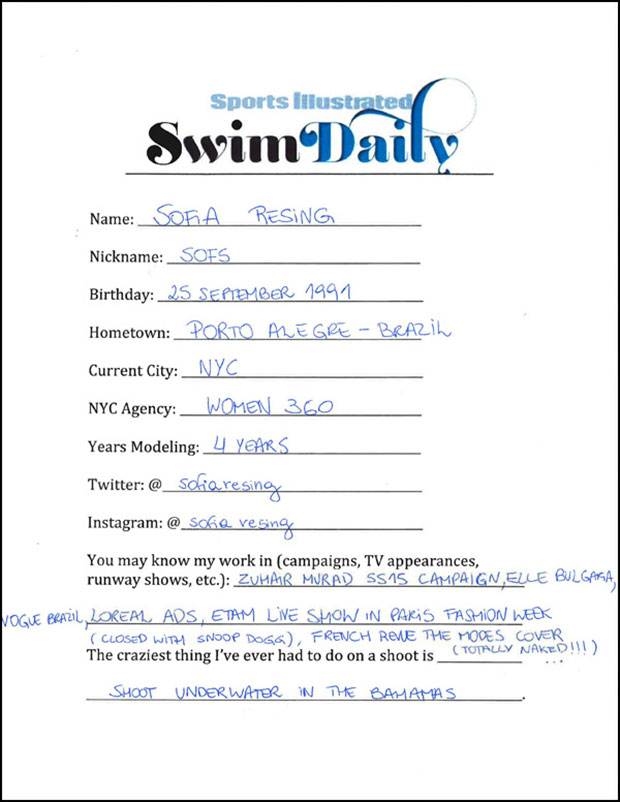 Sports Illustrated
Swim Daily
Name: SOFIA RESING
Nickname: SOFS
Birthday: 25 SEPTEMBER 1991
Hometown: PORTO ALEGRE - BRAZIL
Current City: NYC
NYC Agency: WOMEN 360
Years Modeling: 4 YEARS
Twitter: @ sofiaresing
Instagram: @ sofia resing
You may know my work in (campaigns, TV appearances,
runway shows, etc.): ZUHAIR MURAD SS15 CAMPAIGN, ELLE BULGAGA,
VOGUE BRAZIL, LOREAL ADS, ETAM LIVE SHOW IN PARIS FASHION WEEK
(CLOSED WITH SNOOP DOGG), FRENCH REVUE THE MODES COVER
(TOTALLY NAKED!!!)
The craziest thing I've ever had to do on a shoot is ...
SHOOT UNDERWATER IN THE BAHAMAS.